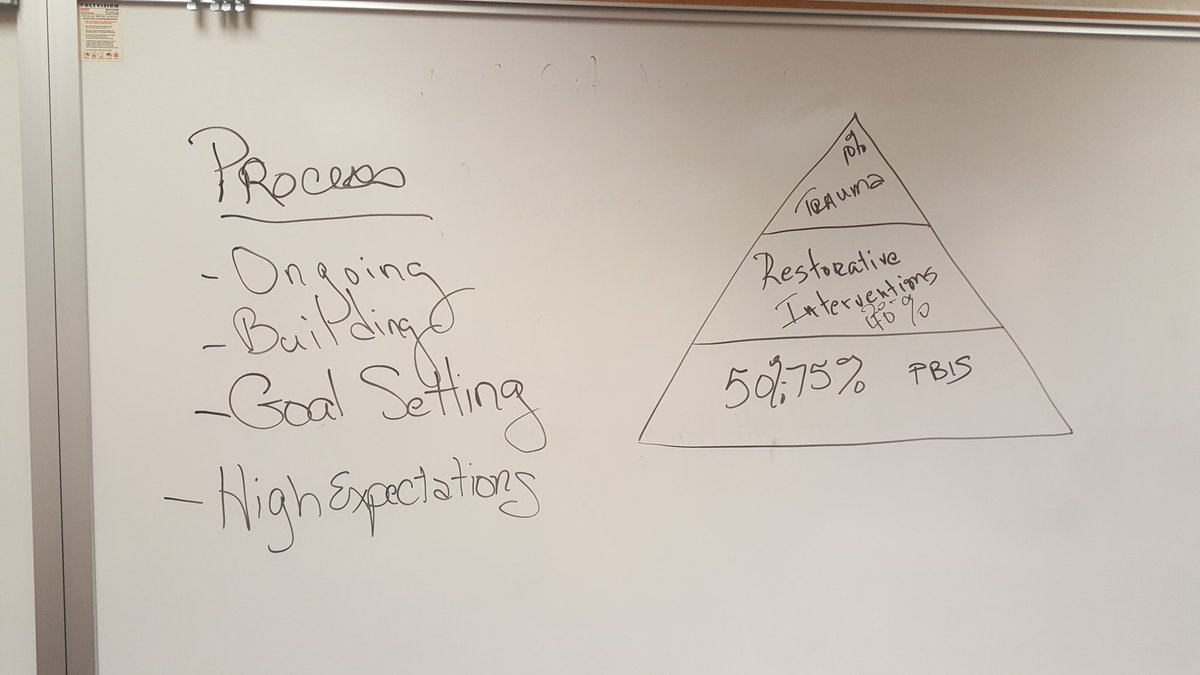 POLYVISION
Process
- Ongoing
- Building
- Goal Setting
- High Expectations
10%
Trauma
Restorative
Interventions
20-
40%
50%-75% PBIS